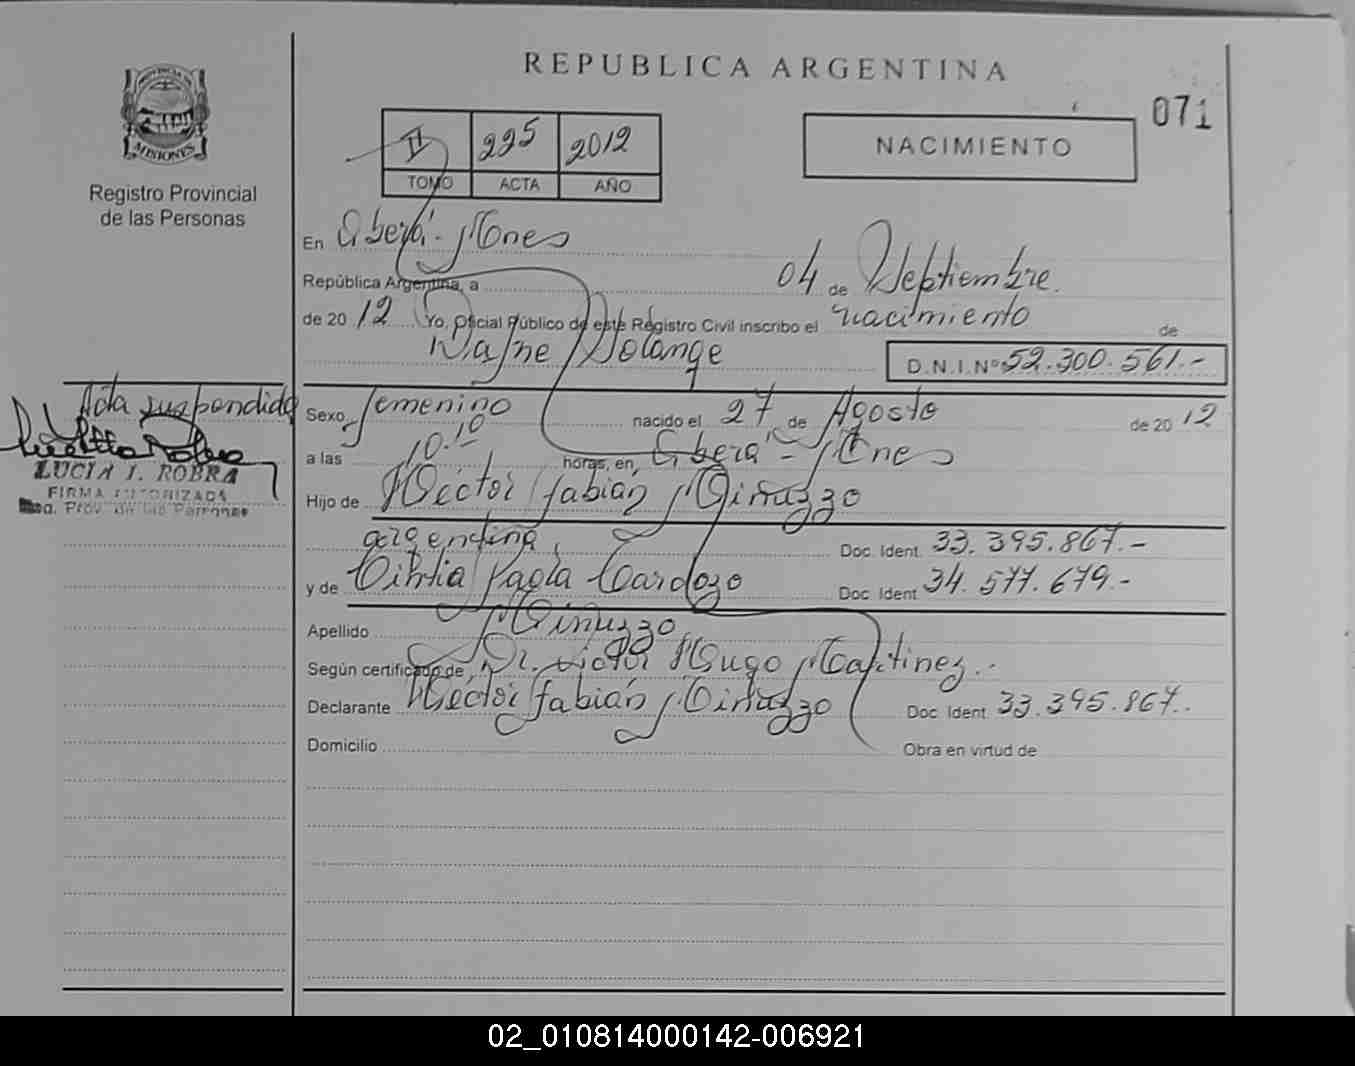 REPUBLICA ARGENTINA
071
PROVINCIA DE
MISIONES
Registro Provincial
de las Personas
II 225 2012
TOMO ACTA AÑO
NACIMIENTO
En Oberá - Mnes
República Argentina, a 04 de Septiembre
de 20 12 Yo, Oficial Público de este Registro Civil inscribo el nacimiento de
Dafne Solange D.N.I.Nº 52.300.561.-
Acta suspendida
LUCIA I. ROBRA
FIRMA AUTORIZADA
Prov. de las Personas
Sexo femenino nacido el 27 de Agosto de 20 12
a las 10.10 horas, en Oberá - Mnes
Hijo de Héctor fabián Minuzzo
argentina, Doc. Ident. 33.395.867.-
y de Cintia Paola Cardozo Doc. Ident 34.577.679.-
Apellido Minuzzo
Según certificado de Dr. Victor Hugo Martinez.-
Declarante Héctor fabián Minuzzo Doc. Ident 33.395.867.
Domicilio Obra en virtud de
02_010814000142-006921